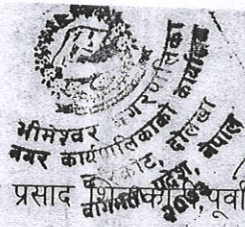 भीमेश्वर नगरपालिका
नगर कार्यपालिकाको कार्यालय
चरिकोट, दोलखा
बागमती प्रदेश, नेपाल
प्रसाद शिवाकोटी, पूर्वी